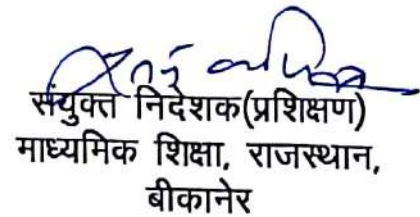 संयुक्त निदेशक(प्रशिक्षण)
माध्यमिक शिक्षा, राजस्थान,
बीकानेर